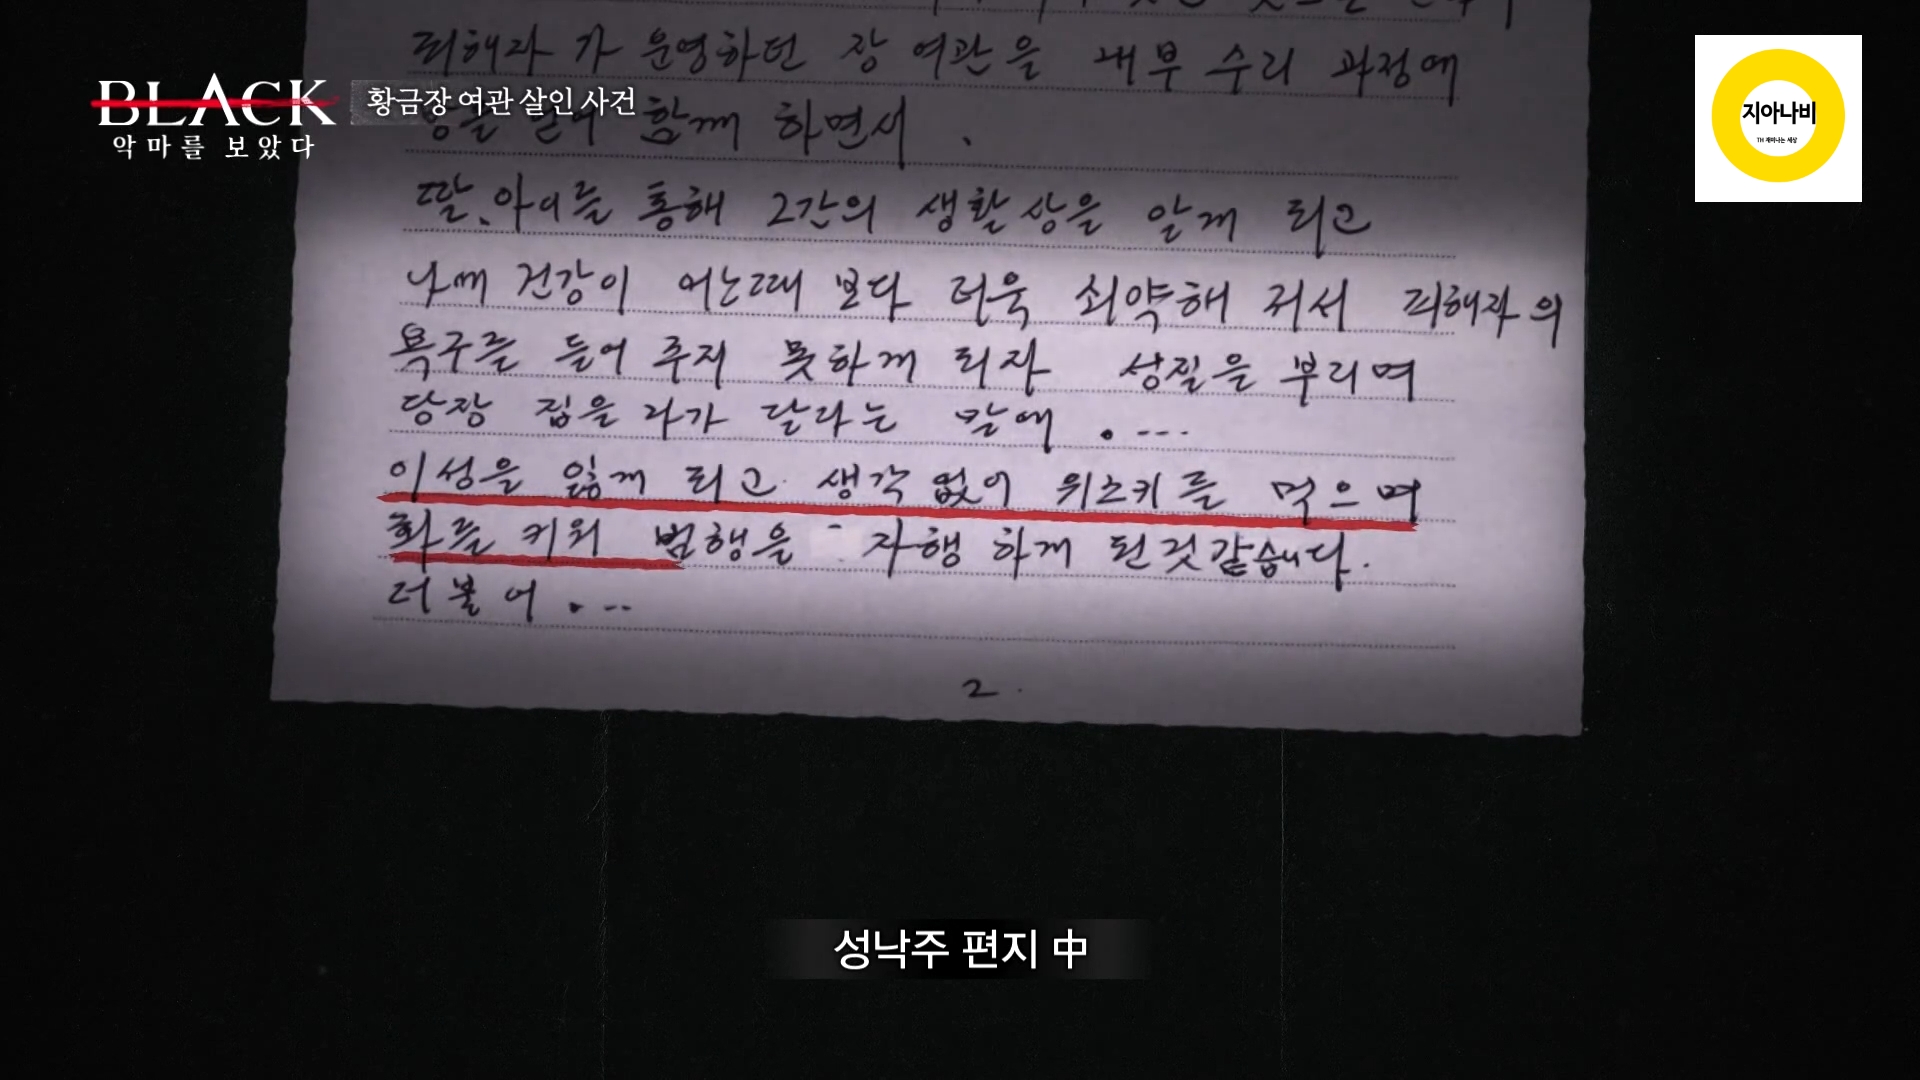 BLACK
악마를 보았다
황금장 여관 살인 사건
지아나비
TH 재미나는 세상
피해자 가 운영하던 장 여관을 내부 수리 과정에
함께 하면서 .
딸.아이를 통해 2간의 생활상을 알게 되고
나에 건강이 어느때 보다 더욱 쇠약해 저서 피해자의
욕구를 들어 주지 못하게 되자 성질을 부리며
당장 집을 나가 달라는 말에 . ...
이성을 잃게 되고 생각없이 위스키를 먹으며
화를 키워 범행을 자행 하게 된것같습니다.
더불어 . ..
2 .
성낙주 편지 中